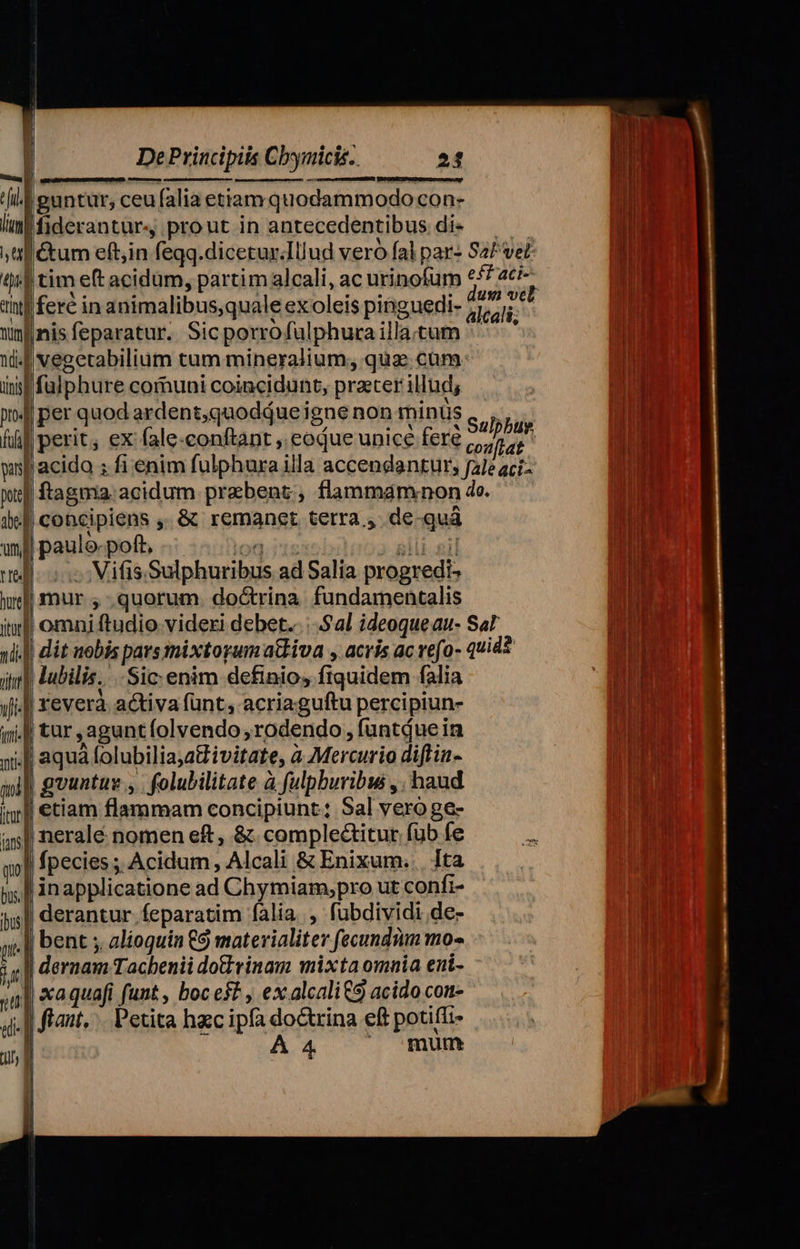 De Principiis Chymicis. 23
guntur, ceu ſalia etiam quodammodo con-
ſiderantur, prout in antecedentibus di-
ctum eſt, in ſeqq. dicetur. Illud vero ſal par- Sal vel
tim eſt acidum, partim alcali, ac urinoſum est aci-
ferè in animalibus, quale ex oleis pinguedi- dum vel
nis ſeparatur. Sic porrò ſulphura illa tum alcali,
vegetabilium tum mineralium, quæ cum
ſulphure comuni coincidunt, præter illud,
per quod ardent, quodq́ue igne non minùs Sulphur
perit, ex ſale conſtant, eoque unicè ferè conſtat
acido; ſi enim ſulphura illa accendantur, ſale aci-
ſtagma acidum præbent, flammam non do.
concipiens, & remanet terra, de quâ
paulo poſt.
Viſis Sulphuribus ad Salia progredi-
mur, quorum doctrina fundamentalis
omni ſtudio videri debet. Sal ideoque au- Sal
dit nobis pars mixtorum activa, acris ac reſo- quid?
lubilis. Sic enim definio, ſiquidem ſalia
reverà activa ſunt, acria guſtu percipiun-
tur, agunt ſolvendo, rodendo, ſuntq́ue in
aquâ ſolubilia, activitate, à Mercurio diſtin-
guuntur, ſolubilitate à ſulphuribus, haud
etiam flammam concipiunt: Sal verò ge-
nerale nomen eſt, & complectitur ſub ſe
ſpecies; Acidum, Alcali & Enixum. Ita
in applicatione ad Chymiam, pro ut conſi-
derantur ſeparatim ſalia, ſubdividi de-
bent; alioquin & materialiter ſecundùm mo-
dernam Tachenii doctrinam mixta omnia eni-
xa quaſi ſunt, hoc est, ex alcali & acido con-
ſtant. Petita hæc ipſa doctrina eſt potiſſi-
A 4 mùm